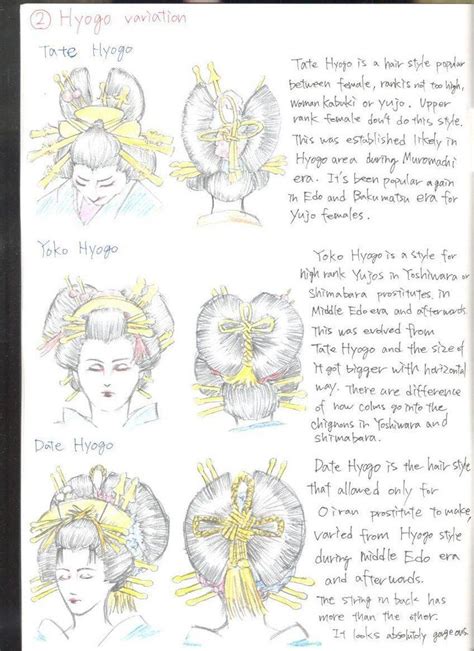 ② Hyogo variation
Tate Hyogo
Tate Hyogo is a hair style popular
between female, rank is not too high,
woman Kabuki or Yujo. Upper
rank female don't do this style.
This was established likely in
Hyogo area during Muromachi
era. It's been popular again
in Edo and Bakumatsu era for
Yujo females.
Yoko Hyogo
Yoko Hyogo is a style for
high rank Yujos in Yoshiwara or
Shimabara prostitutes, in
Middle Edo era and afterwards.
This was evolved from
Tate Hyogo and the size of
it got bigger with horizontal
way. There are difference
of how colms go into the
chignons in Yoshiwara and
shimabara.
Date Hyogo
Date Hyogo is the hair style
that allowed only for
Oiran prostitute to make
varied from Hyogo style
during Middle Edo era
and afterwords.
The string in back has
more than the other.
It looks absolutely